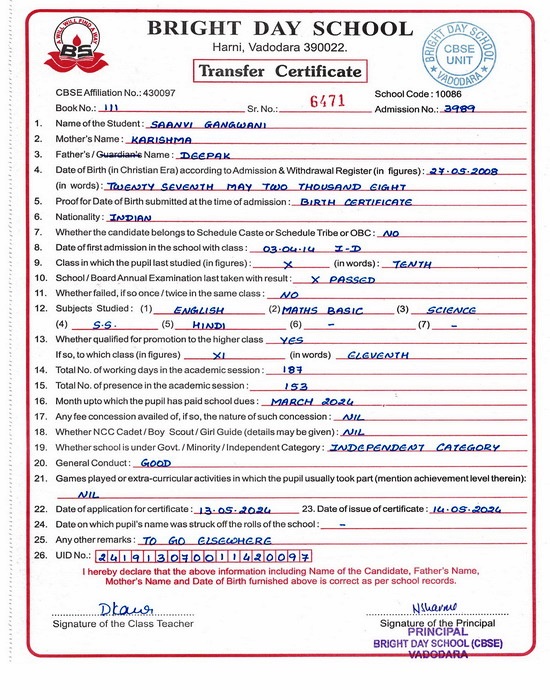 A WILL WILL FIND A WAY
BS
BRIGHT DAY SCHOOL
Harni, Vadodara 390022.
Transfer Certificate
BRIGHT DAY SCHOOL
CBSE
UNIT
VADODARA
CBSE Affiliation No.: 430097 School Code : 10086
Book No.: III Sr. No.: 6471 Admission No.: 3989
1. Name of the Student : SAANVI GANGWANI
2. Mother's Name : KARISHMA
3. Father's / Guardian's Name : DEEPAK
4. Date of Birth (in Christian Era) according to Admission & Withdrawal Register (in figures) : 27.05.2008
(in words) : TWENTY SEVENTH MAY TWO THOUSAND EIGHT
5. Proof for Date of Birth submitted at the time of admission : BIRTH CERTIFICATE
6. Nationality : INDIAN
7. Whether the candidate belongs to Schedule Caste or Schedule Tribe or OBC : NO
8. Date of first admission in the school with class : 03.04.14 I-D
9. Class in which the pupil last studied (in figures) : X (in words) : TENTH
10. School / Board Annual Examination last taken with result : X PASSED
11. Whether failed, if so once / twice in the same class : NO
12. Subjects Studied : (1) ENGLISH (2) MATHS BASIC (3) SCIENCE
(4) S.S. (5) HINDI (6) - (7) -
13. Whether qualified for promotion to the higher class YES
If so, to which class (in figures) XI (in words) ELEVENTH
14. Total No. of working days in the academic session : 187
15. Total No. of presence in the academic session : 153
16. Month upto which the pupil has paid school dues : MARCH 2024
17. Any fee concession availed of, if so, the nature of such concession : NIL
18. Whether NCC Cadet / Boy Scout / Girl Guide (details may be given) : NIL
19. Whether school is under Govt. / Minority / Independent Category : INDEPENDENT CATEGORY
20. General Conduct : GOOD
21. Games played or extra-curricular activities in which the pupil usually took part (mention achievement level therein):
NIL
22. Date of application for certificate : 13.05.2024 23. Date of issue of certificate : 14.05.2024
24. Date on which pupil's name was struck off the rolls of the school : -
25. Any other remarks : TO GO ELSEWHERE
26. UID No.: 241913070011420097
I hereby declare that the above information including Name of the Candidate, Father's Name,
Mother's Name and Date of Birth furnished above is correct as per school records.
Signature of the Class Teacher Signature of the Principal
PRINCIPAL
BRIGHT DAY SCHOOL (CBSE)
VADODARA